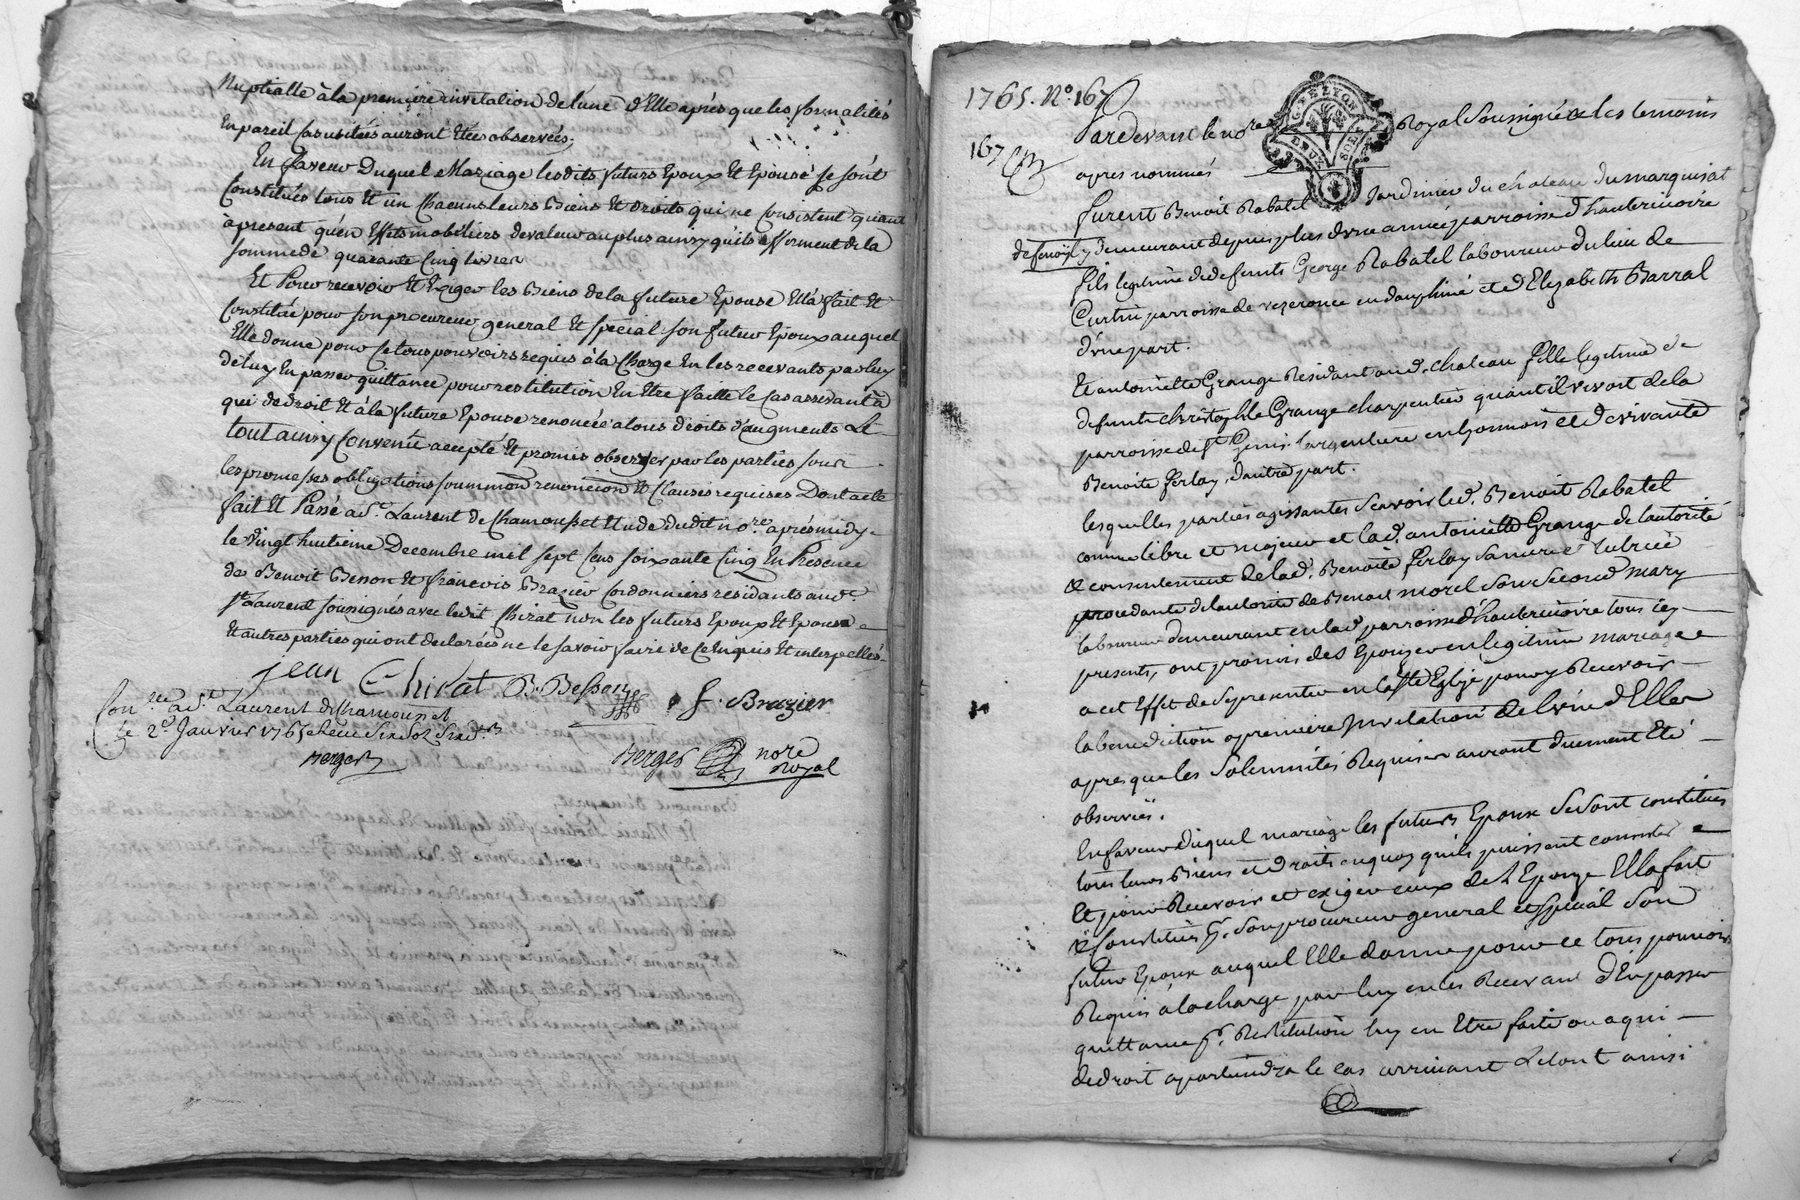 Nuptialle à la premiere invitation de l'une d'Elle aprés que les formalités
En pareil Cas usitées auront Etées observées,
En faveur Duquel Mariage lesdits futurs Epoux Et Epouse se sont
Constitués tous Et un Chacuns leurs Biens Et droits qui ne Consistent quant
à present qu'en Effets mobiliers de valeur au plus ainsy qu'ils afferment de la
somme de quarante Cinq livres
Et Pour recevoir Et Exiger les Biens de la future Epouse Ella fait Et
Constitué pour son procureur general Et special son futur Epoux auquel
Elle donne pour Ce tous pouvoirs requis à la Charge En les recevants par luy
de luy En passer quittance pour restitution En Etre faitte le Cas arrivant à
qui de droit Et à la future Epouse renoncée a tous droits d'augments Le
tout ainsy Convenu accepté Et promis observer par les parties sous
les promesses obligations soummon renoncion Et Clauses requises Dont acte
fait Et Passé a St. Laurent de Chamousset Etude dudit nore. aprés midy
le vingt huitieme Decembre mil sept Cens soixante Cinq En Presence
de Benoit Besson Et françois Brazier Cordonniers résidants aud.
St Laurent soussignés avec ledit Chirat non les futurs Epoux Et Epouse
Et autres parties qui ont declarées ne le savoir faire de Ce Enquis Et interpellés.
jean Chirat B. Besson f. Brazier
Con.lée a St. Laurent de Chamousset
le 2e. Janvier 1765
Berger
Berger nore
Royal
1765. No. 167
167
Pardevant le nore Royal Soussigné & les temoins
apres nommés
GTE LYON
DEUX SOLS
furent Benoit Rabatel Jardinier du chateau du marquisat
de fenoyl y demeurant depuis plus d'vne année parroisse d'hauterivoire
fils legitime de defunts George Rabatel laboureur du lieu de
Curtin parroisse de vezeronce en dauphiné et d'Elizabeth Barral
d'vne part.
Et antoinette Grange Residant aud. chateau fille legitime de
defunt christophle Grange charpentier quant il vivoit de la
parroisse de St Genis l'argentiere en lyonnois et de vivante
Benoite ferlay, d'autre part.
lesquelles parties agissantes Scavoir led. Benoit Rabatel
comme libre et majeur et lad. antoinette Grange de l'autorité
& consentement de lad. Benoite ferlay Sa mere
procedante de l'autorité de Benoit morel Son Second mary
laboureur demeurant en lad. parroisse d'hauterivoire tous icy
presents, ont promis de S'Epouser en legitime mariage
a cet Effet de Se presenter en Eglize pour y Recevoir
la benediction a premiere Invitation de L'vn d'Elles
apres que les Solemnités Requises auront duement Eté
observées.
En faveur duquel mariage les futurs Epoux Se Sont constitués
tous leurs Biens et droits en quoy qu'ils puissent consister
Et pour Recevoir et exiger ceux de L'Epouze Ella fait
& Constitué pr. Son procureur general et Special Son
futur Epoux auquel Elle donne pour ce tous pouvoirs
Requis a la charge par luy en les Recevant d'En passer
quittance pr. Restitution luy en Etre faite ou a qui
de droit apartiendra le cas arrivant Le tout ainsi